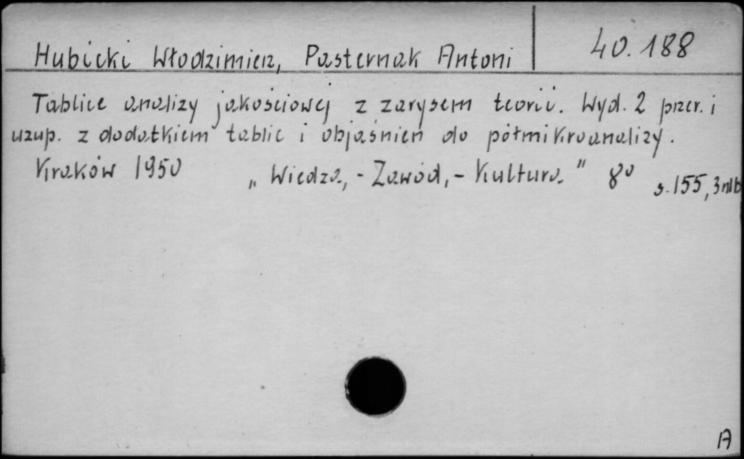 Hubicki Włodzimierz, Pasternak Antoni
40.188
Tablice analizy jakościowej z zarysem teorii. Wyd. 2 przer. i
uzup. z dodatkiem tablic i objaśnień do półmikroanalizy.
Kraków 1950 „Wiedza,-Zawód,-Kultura" 8° s.155, 3nlb
A